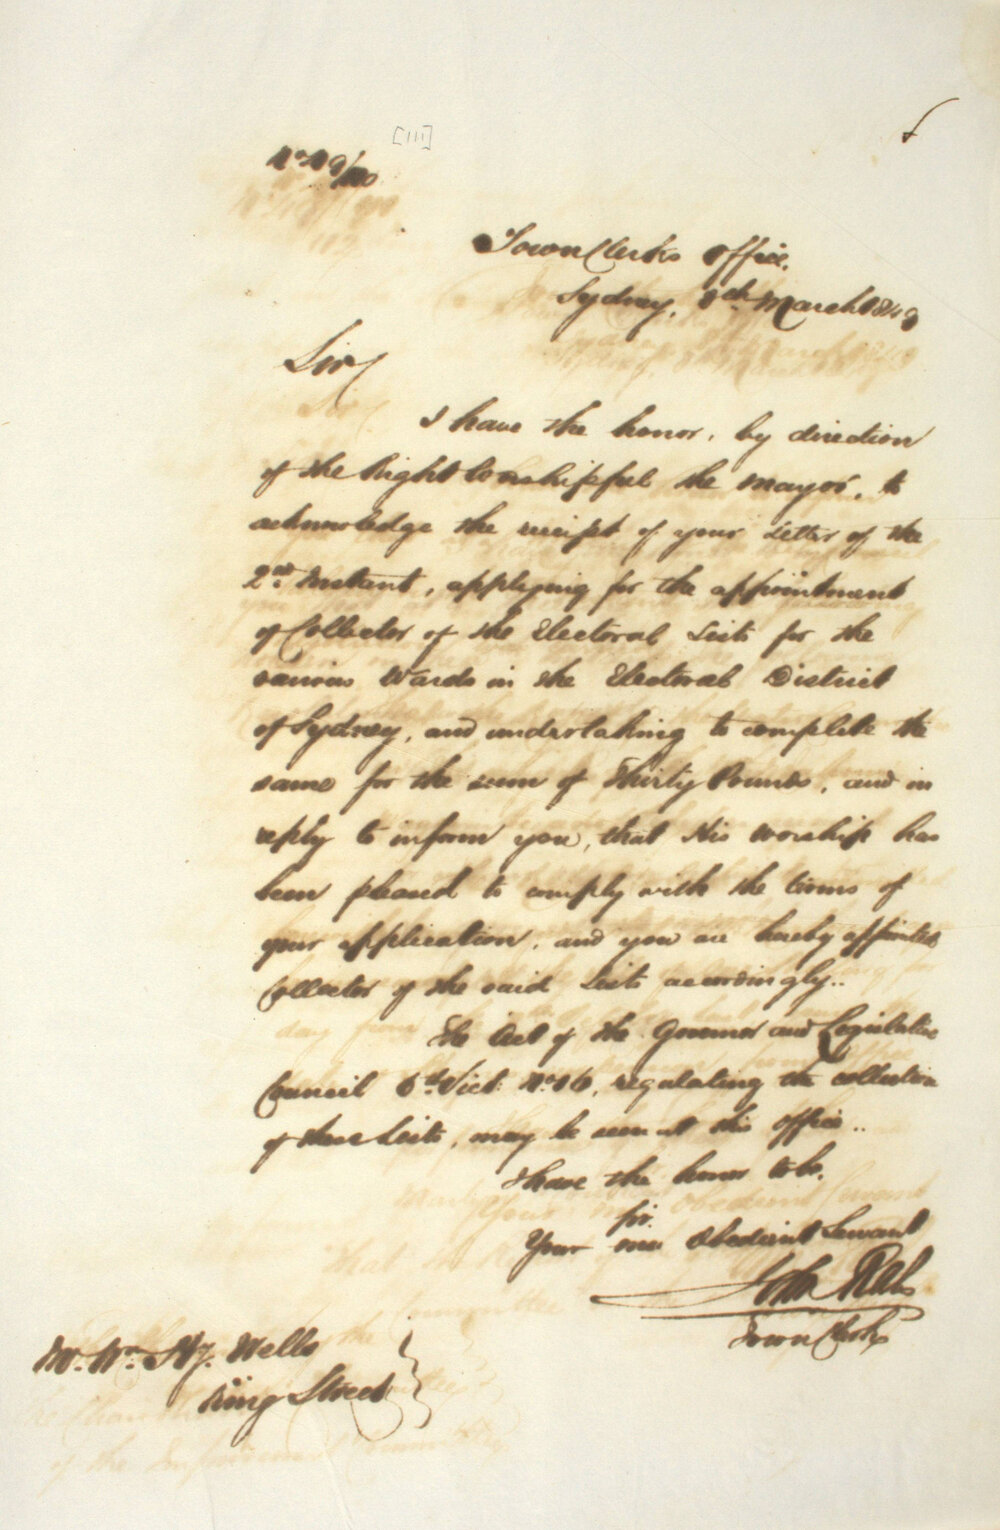 [111]
No 49/100
Town Clerks Office,
Sydney, 8th March 1849
Sir,
I have the honor, by direction
of the Right Worshipful the Mayor, to
acknowledge the receipt of your Letter of the
2nd Instant, applying for the appointment
of Collector of the Electoral Lists for the
various Wards in the Electoral District
of Sydney, and undertaking to complete the
same for the sum of Thirty Pounds, and in
reply to inform you, that His Worship has
been pleased to comply with the terms of
your application, and you are hereby appointed
Collector of the said Lists accordingly..
The Act of the Governor and Legislative
Council 6th Vict: No 16, regulating the collection
of these Lists, may be seen at this office..
I have the honor to be,
Sir
Your Obedient Servant
John Rae
Town Clerk
Mr. Wm. Hy. Wells
King Street